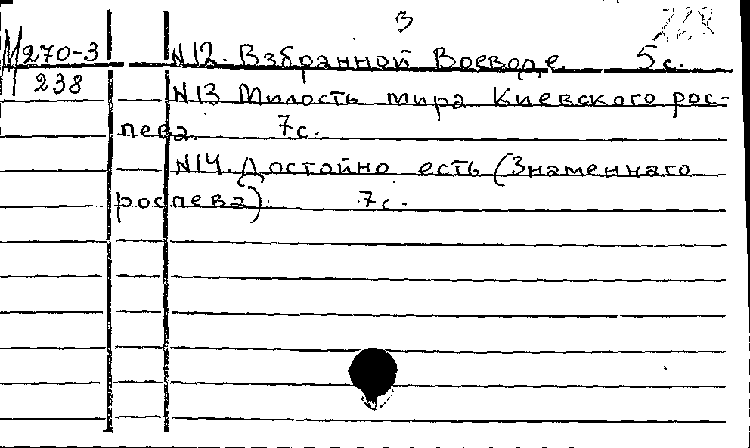 3
228
М270-3
238
N12. Взбранной Воеводе 5с.
N13 Милость мира Киевского рос-
пева 7с.
N14. Достойно есть (Знаменнаго
роспева) 7с.